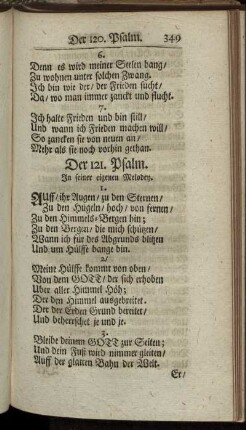 Der 120. Psalm. 349
6.
Denn es wird meiner Seelen bang/
Zu wohnen unter solchen Zwang.
Ich bin wie der/ der Frieden sucht/
Da/ wo man immer zanckt und flucht.
7.
Ich halte Frieden und bin still/
Und wann ich Frieden machen will/
So zancken sie von neuen an/
Mehr als sie noch vorhin gethan.
Der 121. Psalm.
In seiner eigenen Melodey.
1.
Auff/ ihr Augen/ zu den Sternen/
Zu den Hügeln/ hoch/ von fernen/
Zu den Himmels-Bergen hin;
Zu den Bergen/ die mich schützen/
Wann ich für des Abgrunds blitzen
Und um Hülffe bange bin.
2/
Meine Hülffe kommt von oben/
Von dem GOTT/ der sich erhoben
Uber aller Himmel Höh;
Der den Himmel ausgebreitet.
Der der Erden Grund bereitet/
Und beherrschet je und je.
3.
Bleibt deinem GOTT zur Seiten;
Und dein Fuß wird nimmer gleiten/
Auff der glatten Bahn der Welt.
Er/